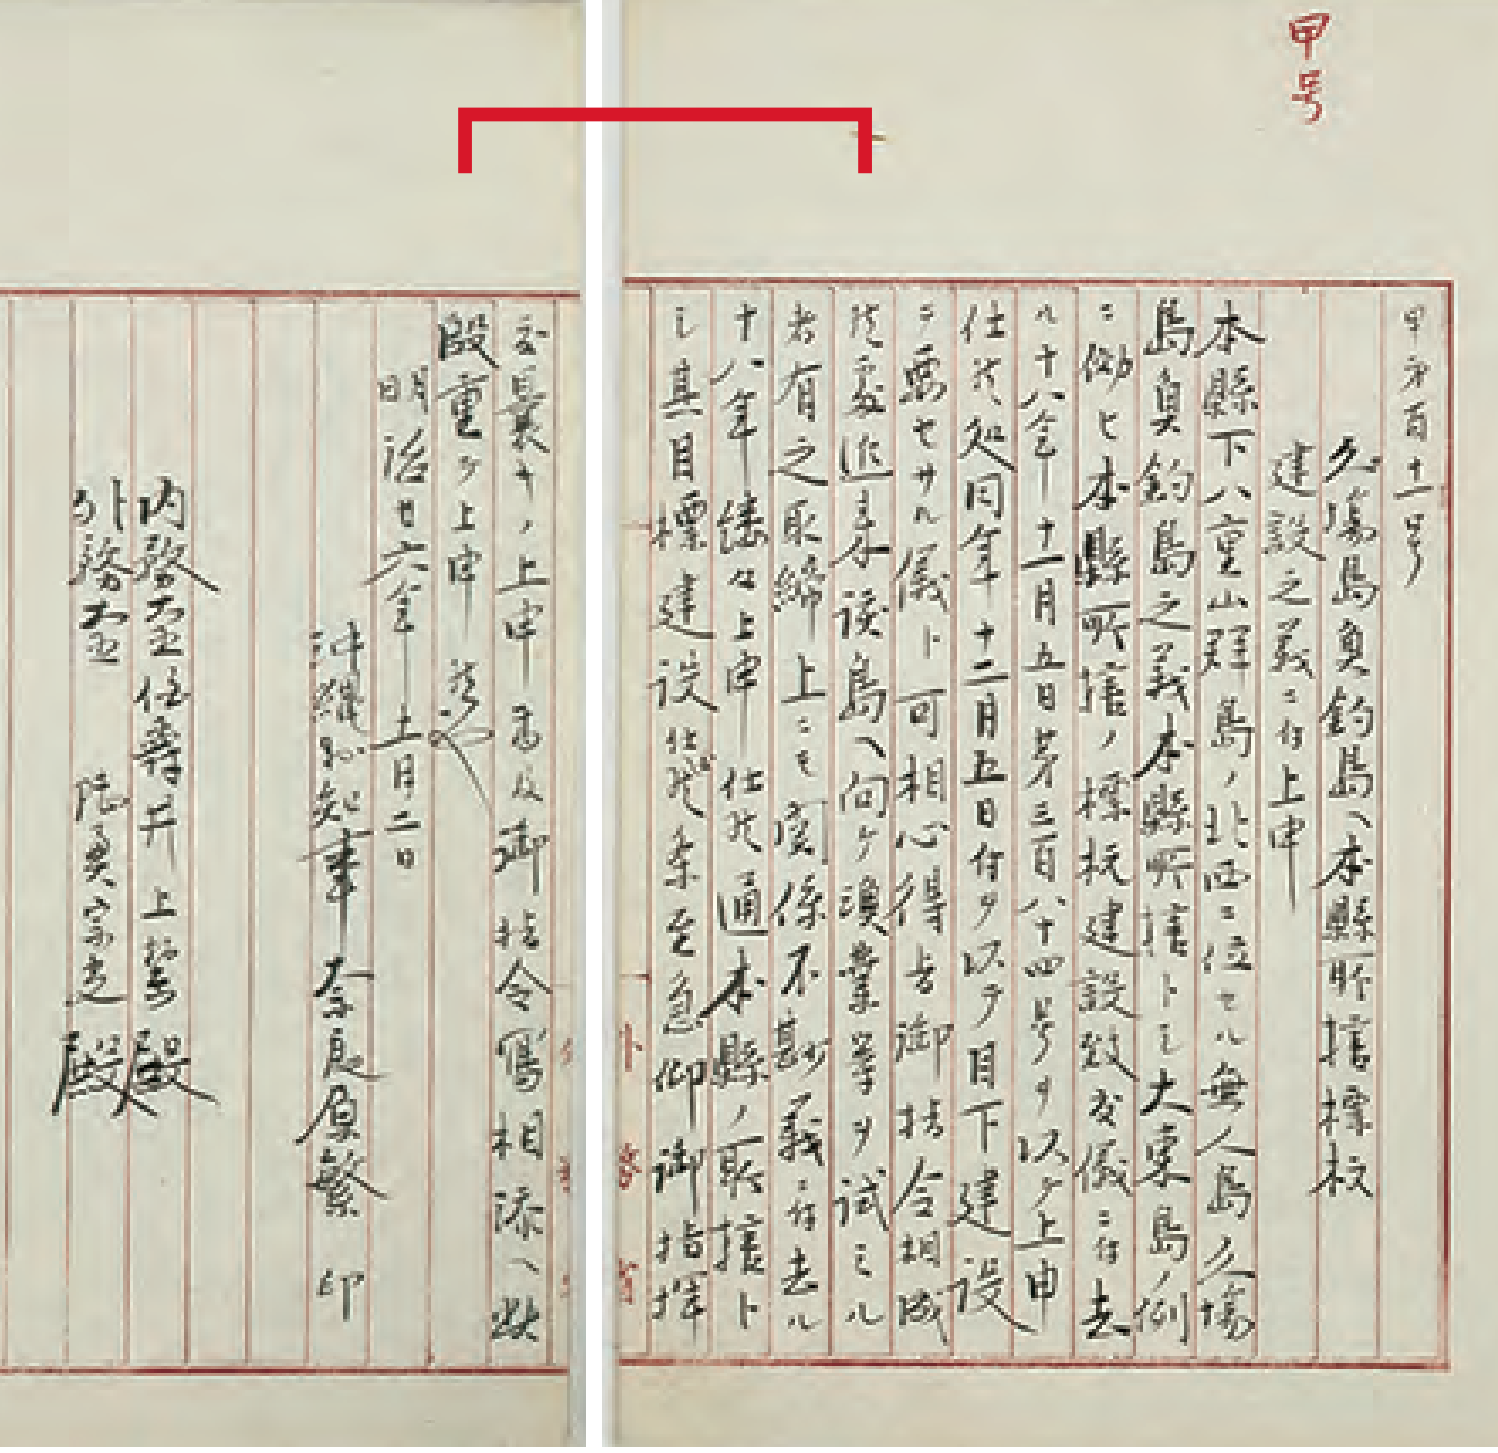 甲号
甲第百十一号
久場島魚釣島ヘ本縣所轄標杭
建設之義ニ付上申
本縣下八重山群島ノ北西ニ位セル無人島久場
島魚釣島之義本縣所轄トシ大東島ノ例
ニ倣ヒ本縣所轄ノ標杭建設致度儀ニ付去
ル十八年十一月五日第三百八十四号ヲ以テ上申
仕候処同年十二月五日付ヲ以テ目下建設
ヲ要セサル儀ト可相心得旨御指令相成
候處近来該島ヘ向ケ漁業等ヲ試ミル
者有之取締上ニモ関係不尠義ニ付去ル
十八年縷々上申仕候通本縣ノ所轄ト
シ其目標建設仕度候条至急仰御指揮
度曩キノ上申書及御指令写相添ヘ此
段重テ上申候也
明治廿六年十一月二日
沖縄縣知事奈良原繁 印
内務大臣伯爵井上馨殿
外務大臣 陸奥宗光殿
外務省